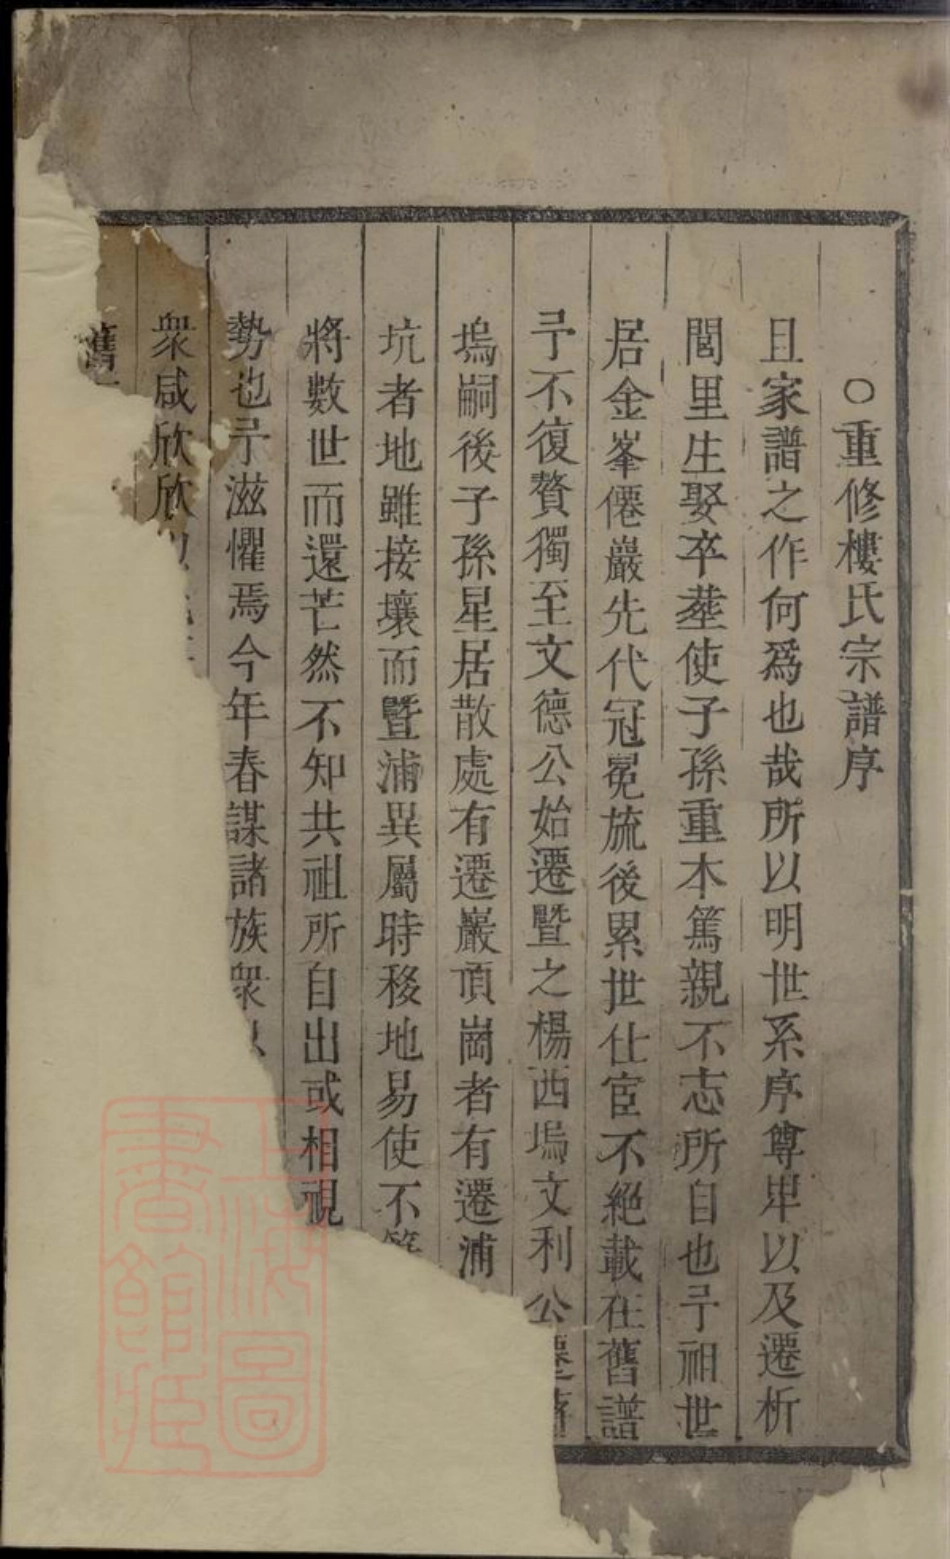 ○重修樓氏宗譜序
且家譜之作何爲也哉所以明世系序尊卑以及遷析
閭里生娶卒塟使子孫重本篤親不忘所自也予祖世
居金峯僊巖先代冠冕旒後累世仕宦不絕載在舊譜
予不復贅獨至文德公始遷暨之楊西塢文利公遷
塢嗣後子孫星居散處有遷巖頂崗者有遷浦
坑者地雖接壤而暨浦異屬時移地易使不
將數世而還芒然不知共祖所自出或相視
勢也予滋懼焉今年春謀諸族衆以
衆咸欣欣
舊
上海圖書館藏